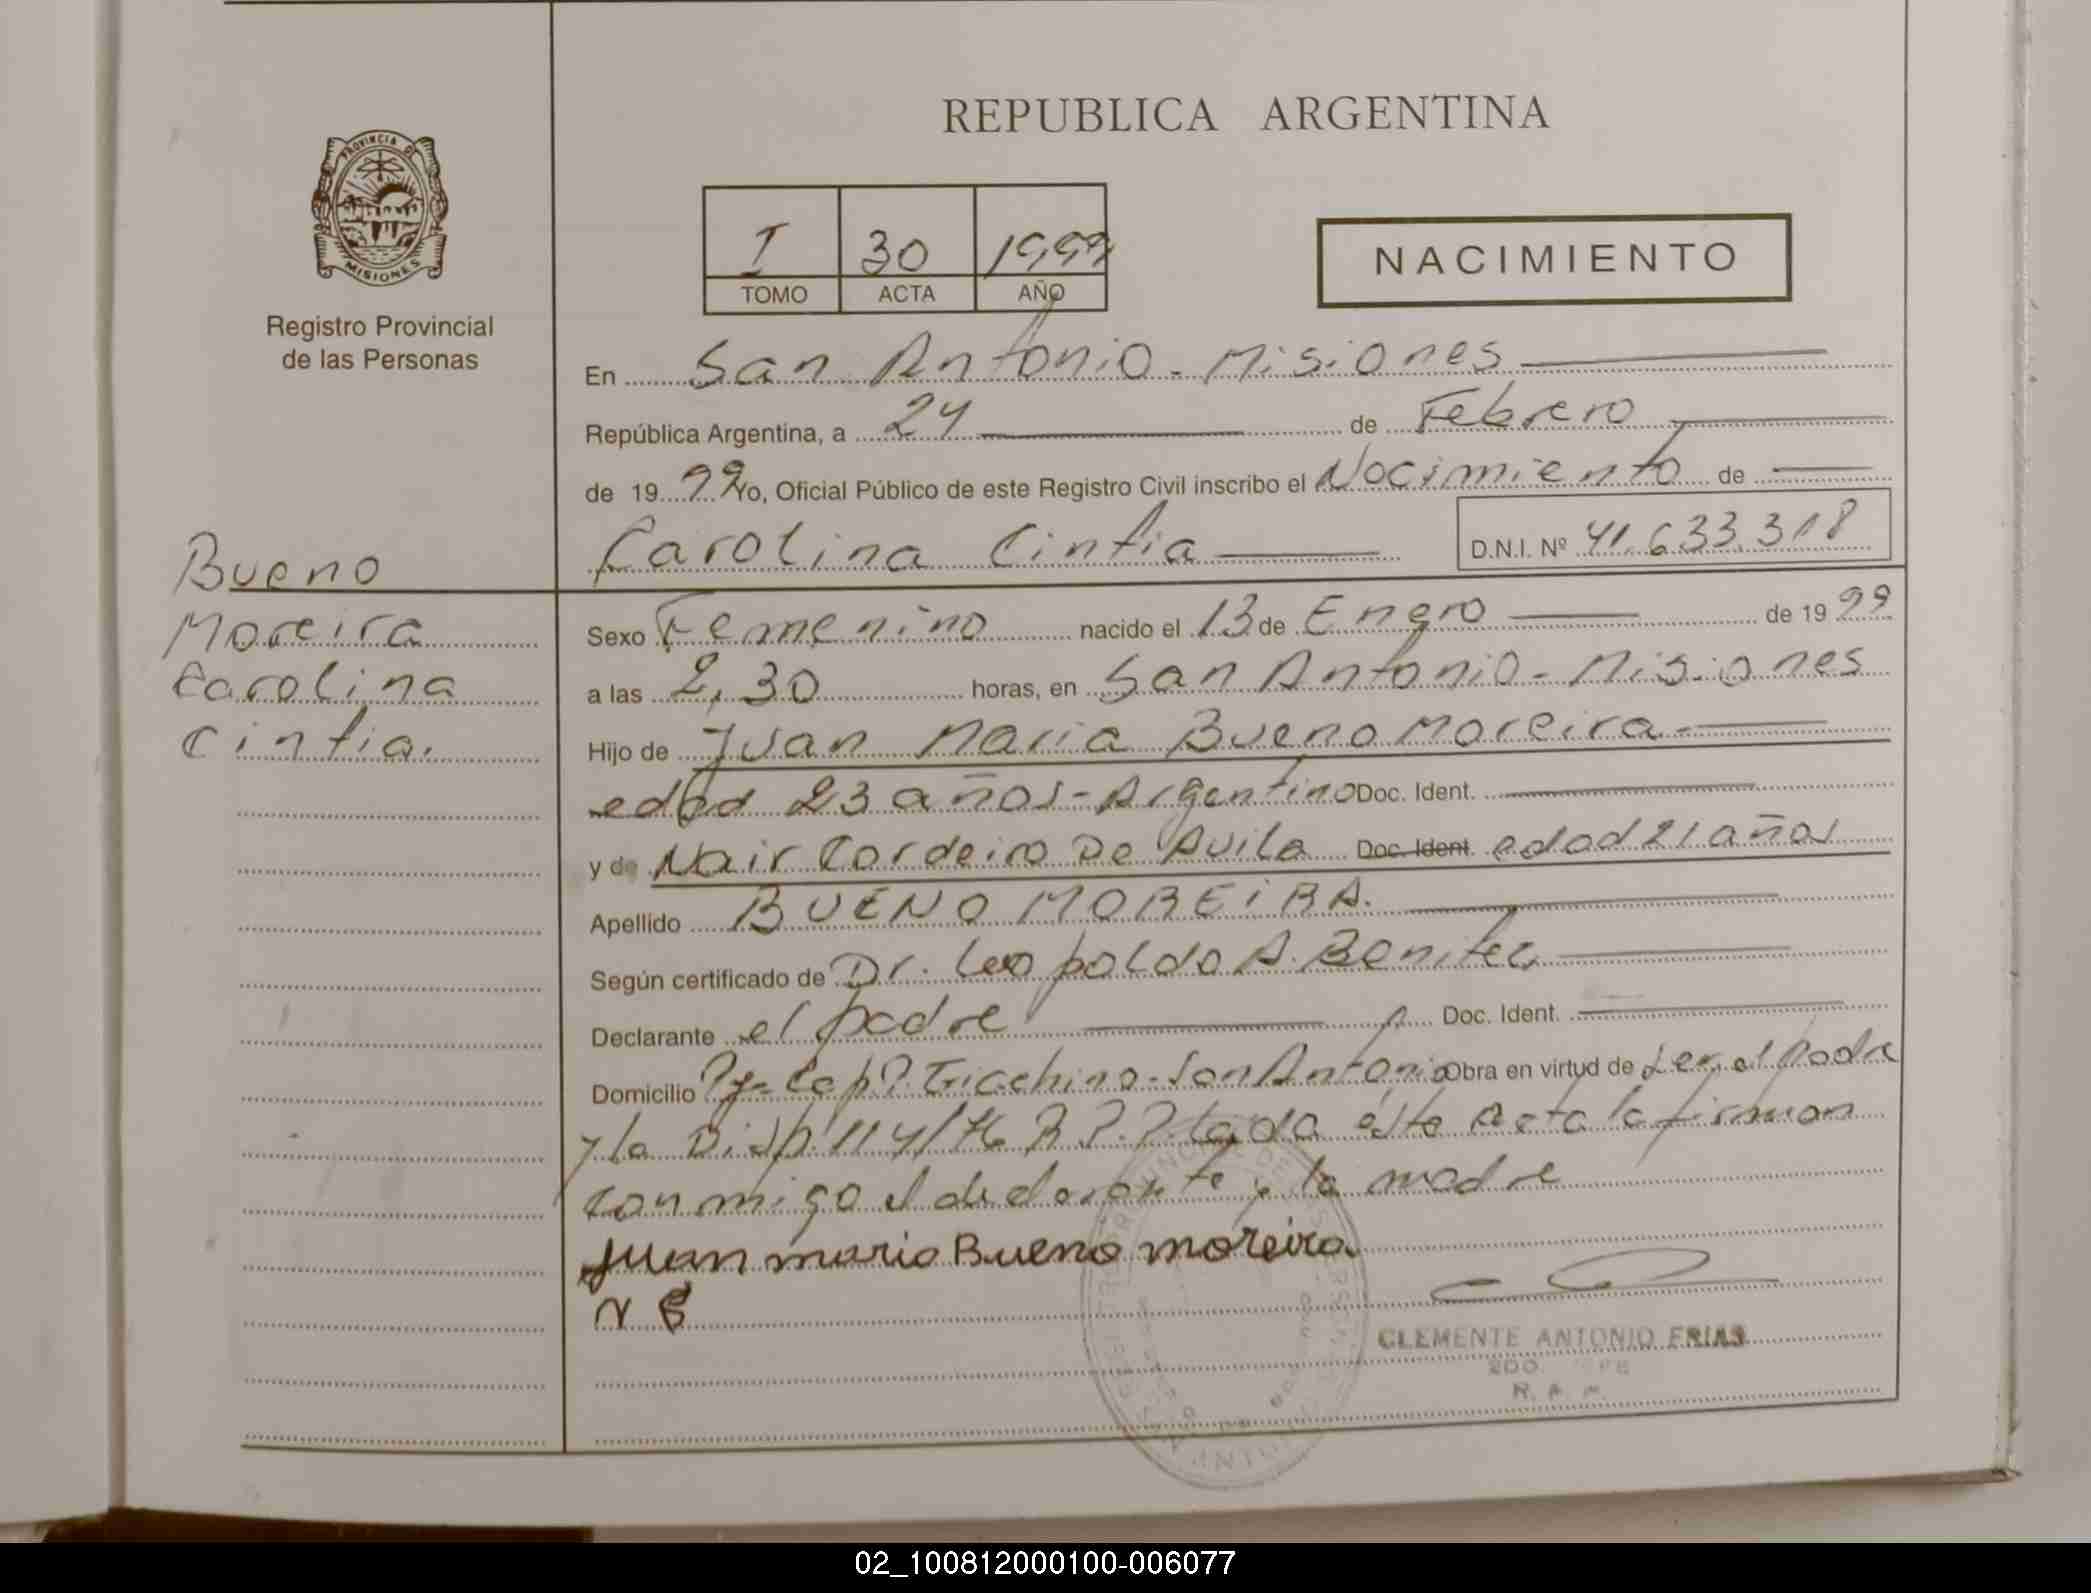 REPUBLICA ARGENTINA
PROVINCIA DE
MISIONES
Registro Provincial
de las Personas
I 30 1999
TOMO ACTA AÑO
NACIMIENTO
En San Antonio - Misiones
República Argentina, a 24 de Febrero
de 19 99 Yo, Oficial Público de este Registro Civil inscribo el Nacimiento de
Carolina Cintia D.N.I. Nº 41.633.318
Bueno
Moreira
Carolina
Cintia.
Sexo Femenino nacido el 13 de Enero de 19 99
a las 2,30 horas, en San Antonio - Misiones
Hijo de Juan Maria Bueno Moreira -
edad 23 años - Argentino Doc. Ident.
y de Nair Cordeiro De Avila Doc. Ident. edad 21 años
Apellido BUENO MOREIRA.
Según certificado de Dr. Leopoldo A. Benitez
Declarante el padre Doc. Ident.
Domicilio San Antonio Obra en virtud de ser el Padre
y la Disp. 114/76 R.P.P. Leida ésta Acta la firman
conmigo el declarante y la madre
Juan maria Bueno moreira
CLEMENTE ANTONIO FRIAS
2DO. JEFE
02_100812000100-006077